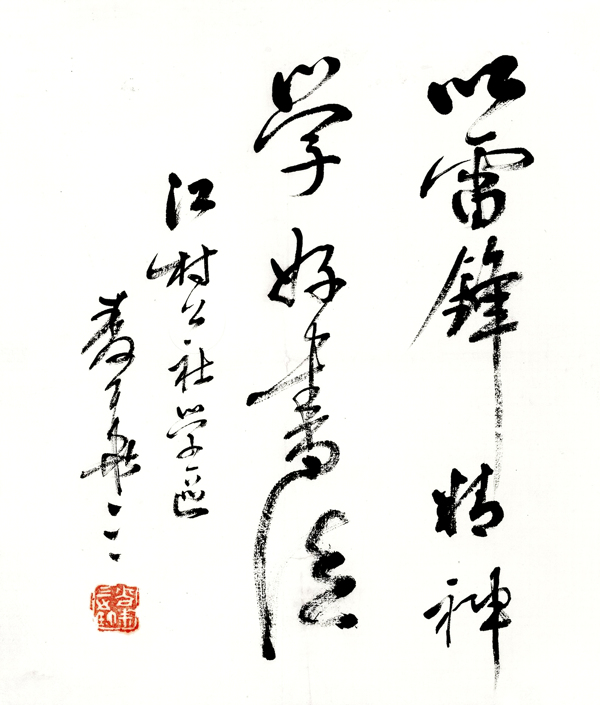 以雷锋精神
学好书法
江村公社学区